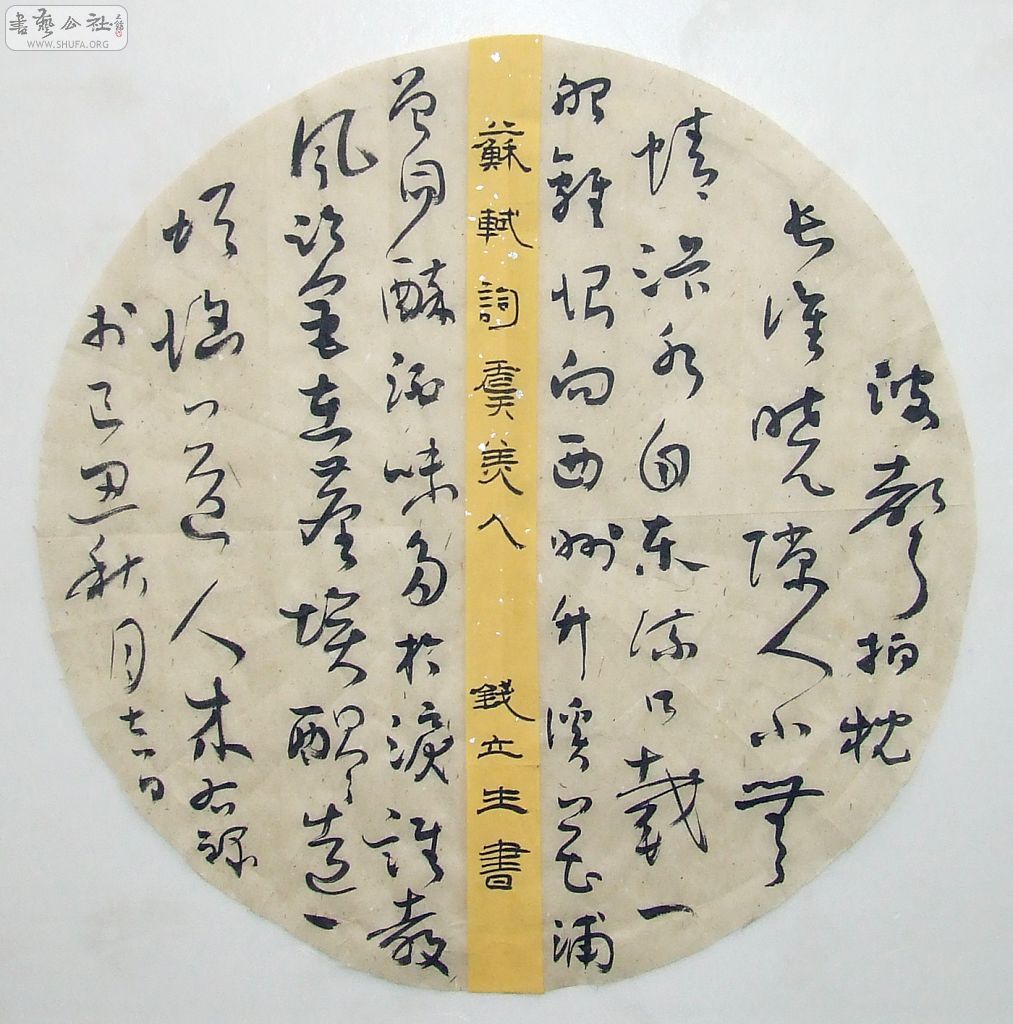 書藝公社
WWW.SHUFA.ORG
波声拍枕
长淮晓隙人小無
情汴水自东流只载一
船離恨向西州竹溪花浦
蘇軾詞虞美人 錢立生書
曾同醉酒味多於淚誰教
风鉴在塵埃醖造一
場惱送人来右録
於己丑秋月吉日